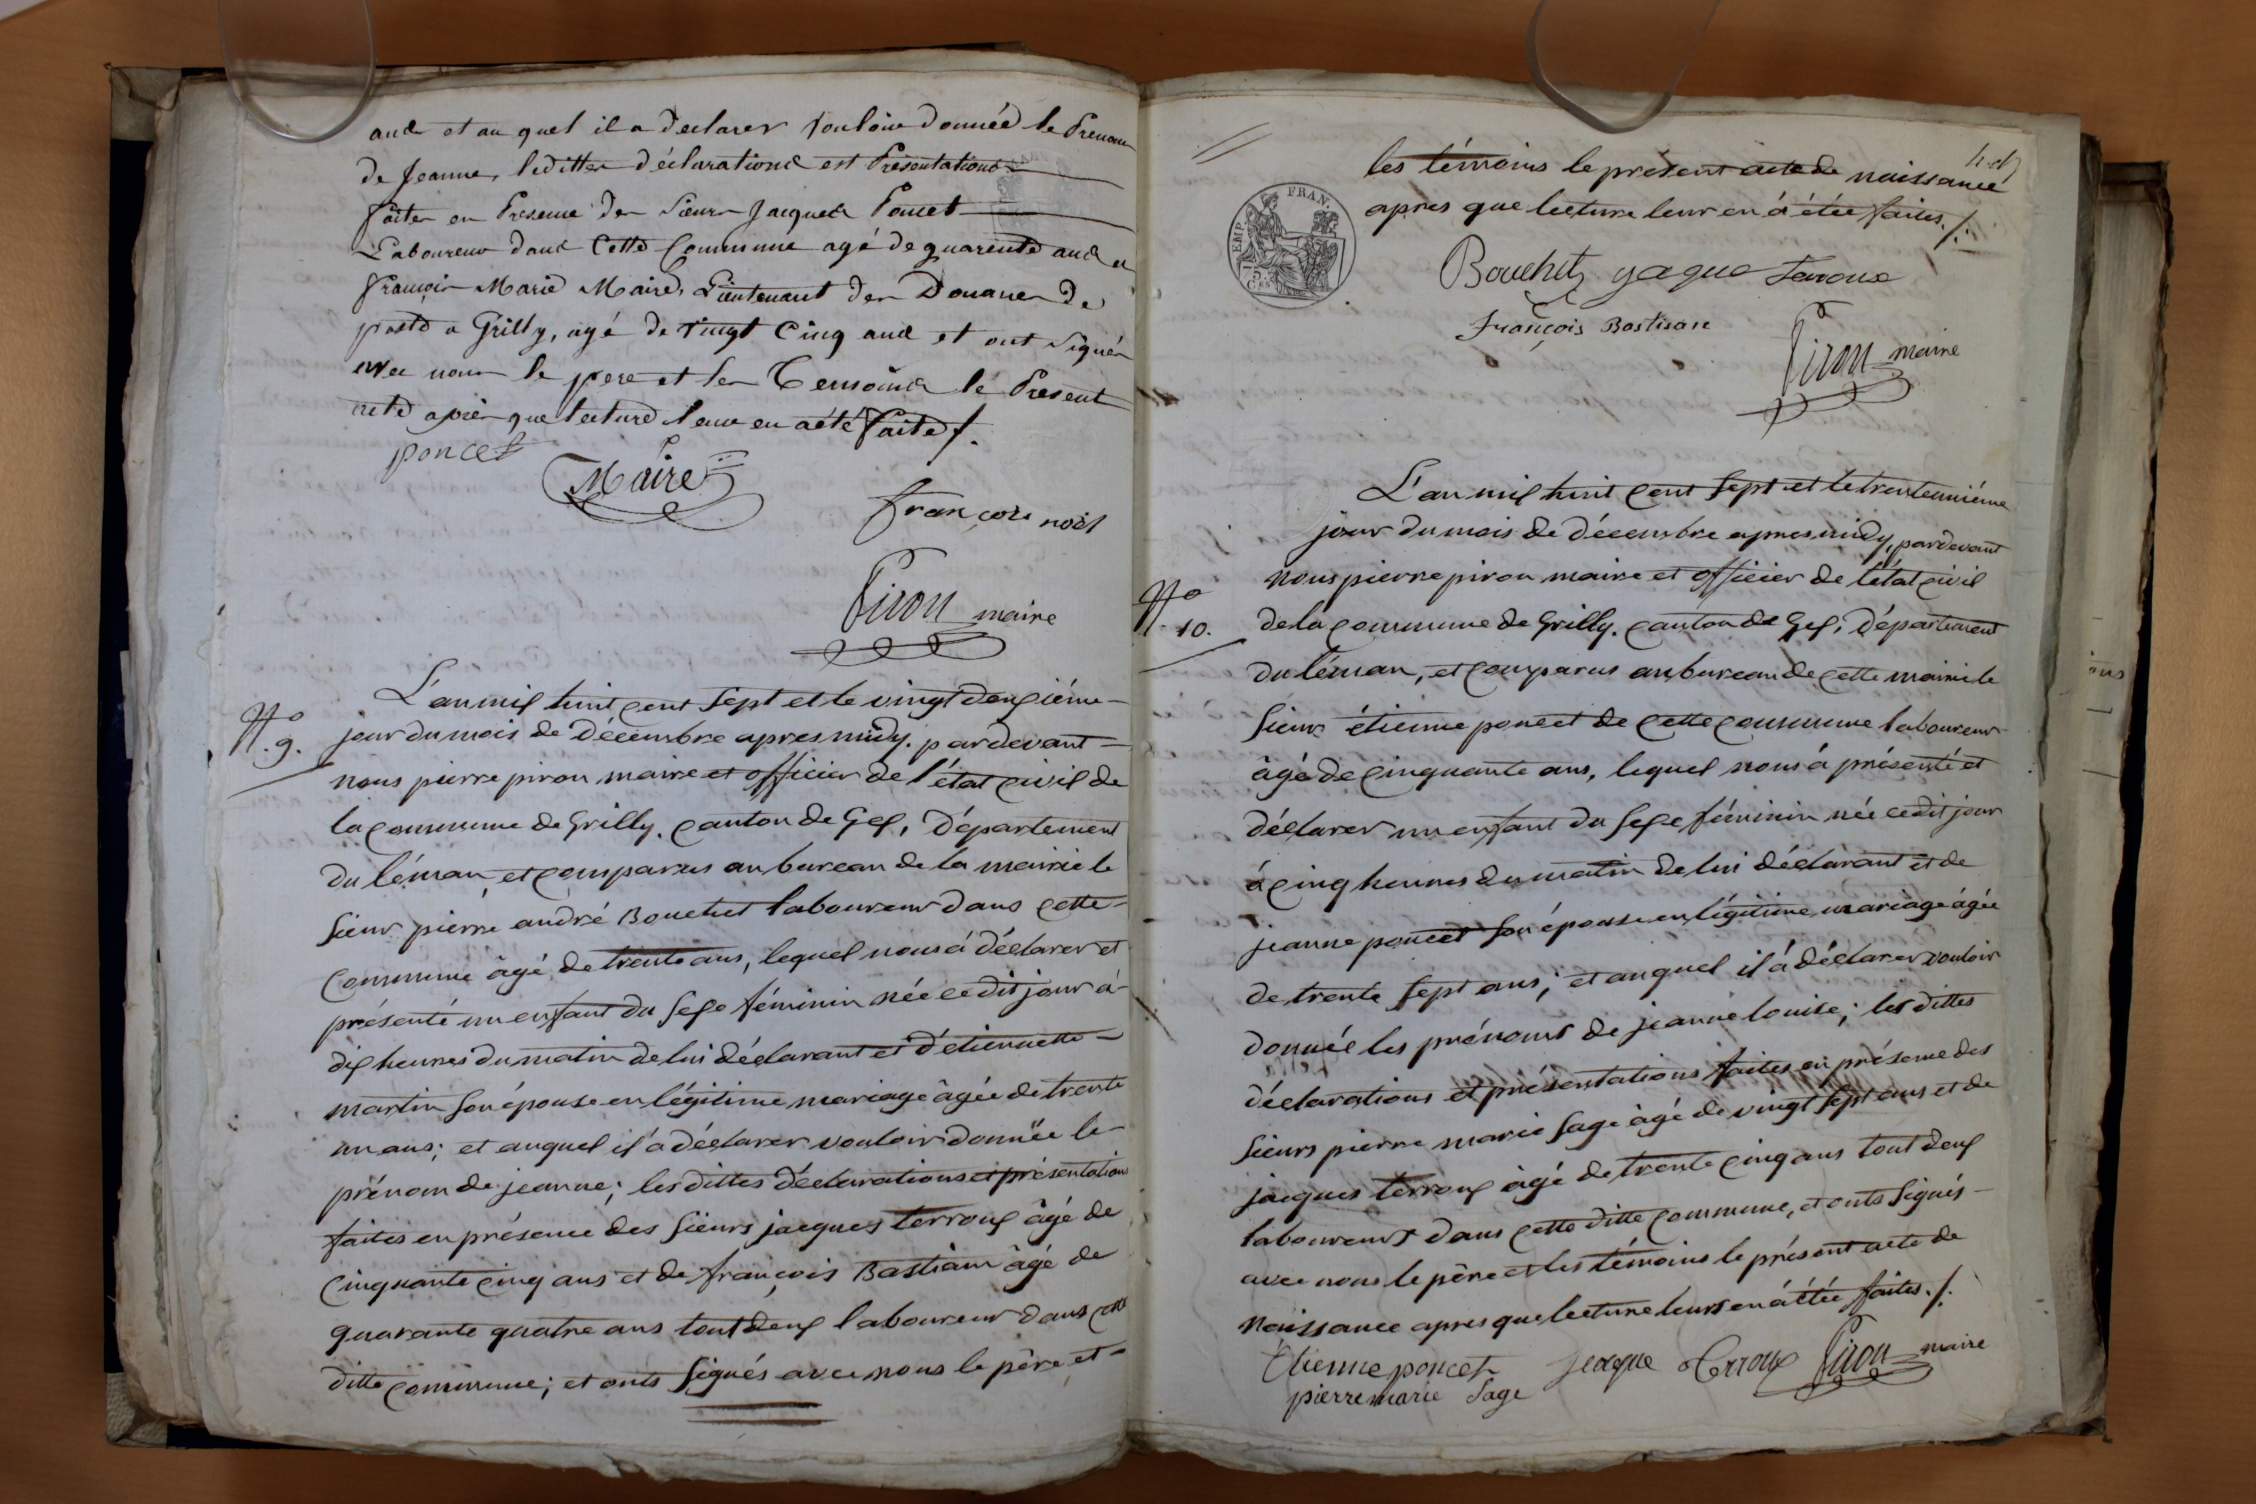 ans et au quel il a declarer vouloir donnée le Prenom
de Jeanne, leditter déclarations est Présentations
faiter en Presence der Sieurs Jacques Poncet
Laboureur dans Cette Commune agé de quarente ans et
françois Marie Maire, Lieutenant der Douaner de
poste a Grilly, agé de vingt Cinq ans et ont signés
avec nous le pere et ler Temoins le Present
acte aprèr que lecture leur en a été faite /.
poncet
Maire
françois noël
Piron maire
N.o 9.
L'an mil huit cent sept et le vingt deuxiéme
jour du mois de Décembre apres midy. pardevant
nous pierre piron maire et officier de l'état civil de
la commune de Grilly. canton de Gex, Département
du léman, et comparus au bureau de la mairie le
sieur pierre andré Bouchet laboureur dans cette
commune âgé de trente ans, lequel nous à déclarer et
présenté un enfant du sexe féminin née cedit jour à
dix heures du matin de lui déclarant et d'étiennette
martin son épouse en légitime mariage âgée de trente
un ans; et auquel il a déclarer vouloir donnée le
prénom de jeanne; les dittes déclarations et présentations
faites en présence des sieurs jacques terroux âgé de
cinquante cinq ans et de françois Bastian âgé de
quarante quatre ans tout deux laboureur dans cette
ditte commune; et onts signés avec nous le père et
les témoins le présent acte de naissance
apres que lecture leur en à étée faites./.
EMP. FRAN.
75 CES
Bouchet jaque Terroux
françois Bastian
Piron maire
N.o 10.
L'an mil huit cent sept et le trente uniéme
jour du mois de Décembre apres midy, pardevant
nous pierre piron maire et officier de l'état civil
de la commune de Grilly. canton de Gex, Département
du léman, et comparus au bureau de cette mairie le
sieur étienne poncet de cette commune laboureur
âgé de cinquante ans, lequel nous à présenté et
déclarer un enfant du sexe féminin née cedit jour
à cinq heures du matin de lui déclarant et de
jeanne poncet son épouse en légitime mariage âgée
de trente sept ans; et auquel il à déclarer vouloir
donnée les prénoms de jeanne louise; les dittes
déclarations et présentations faites en présence des
sieurs pierre marie sage âgé de vingt sept ans et de
jacques terroux âgé de trente cinq ans tout deux
laboureurs dans cette ditte commune, et onts signés
avec nous le père et les témoins le présent acte de
naissance apres que lecture leurs en à étée faites./.
Etienne poncet jeaque Terroux Piron maire
pierre marie Sage